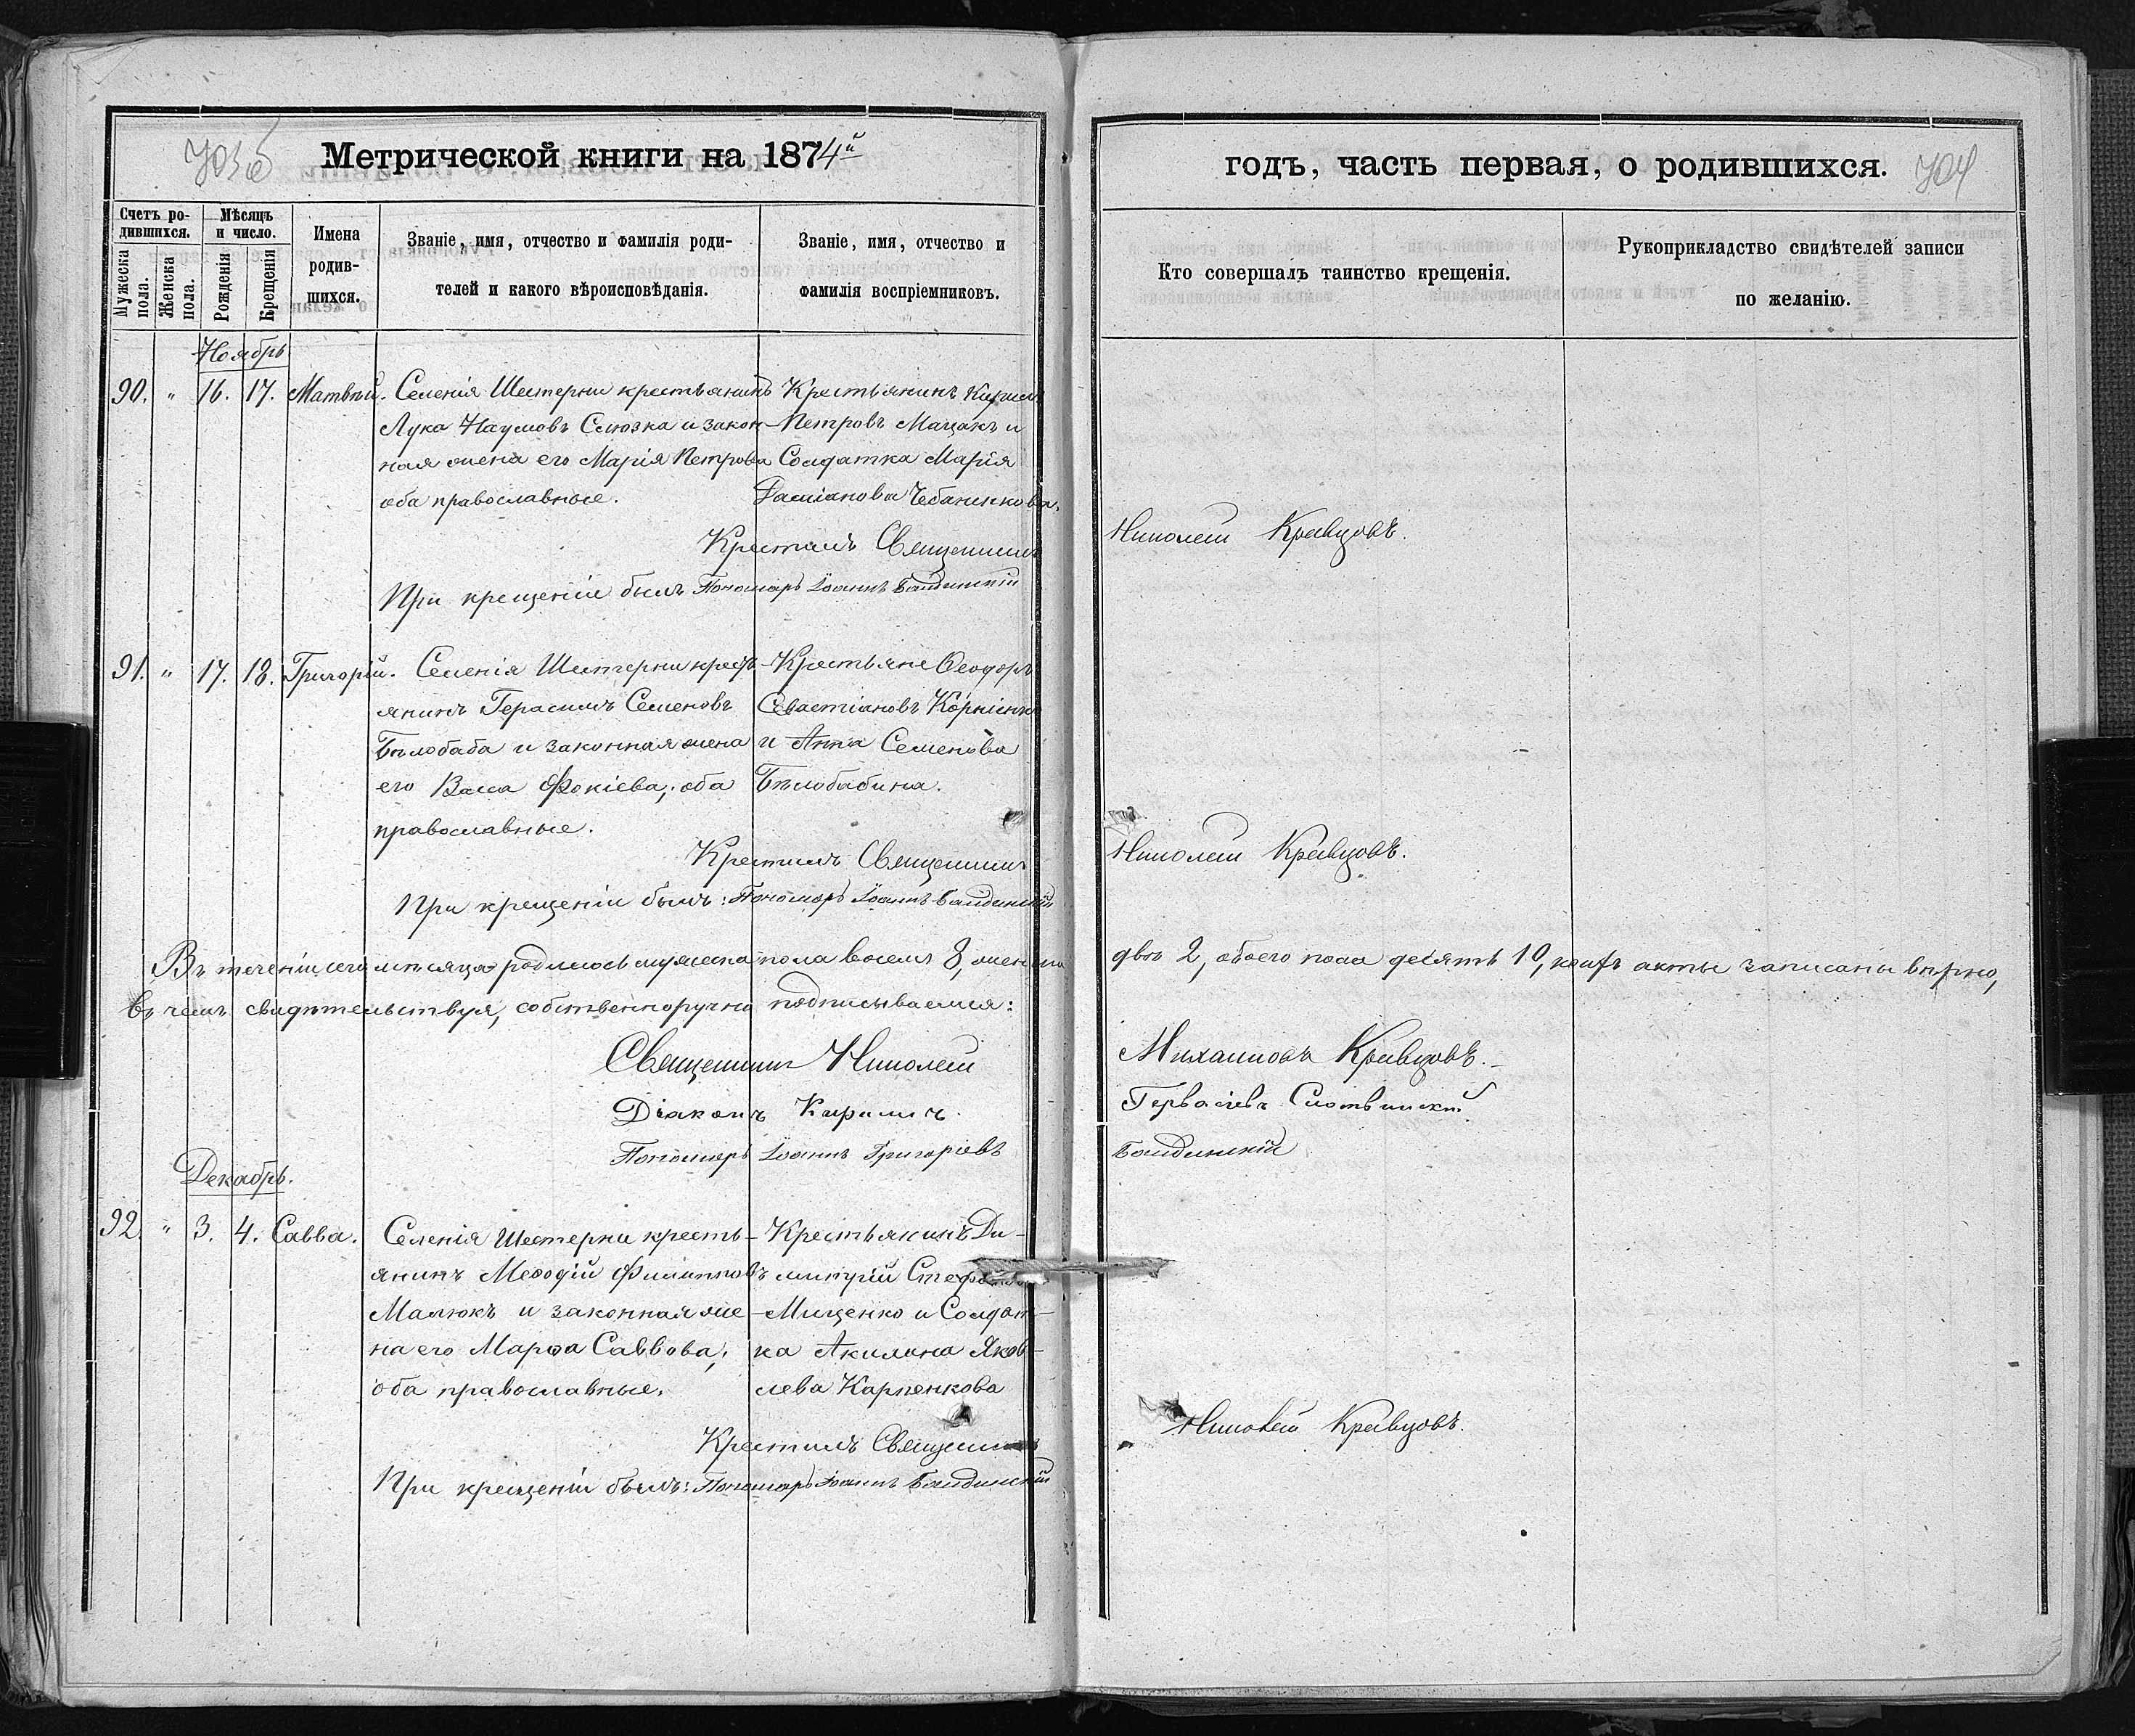 703б
Метрической книги на 1874й
Счетъ ро-
дившихся.
Мѣсяцъ
и число.
Мужеска
пола.
Женска
пола.
Рожденія
Крещенія
Имена
родив-
шихся.
Званіе, имя, отчество и фамилія роди-
телей и какого вѣроисповѣданія.
Званіе, имя, отчество и
фамилія воспріемниковъ.
Ноябрь
90. " 16. 17. Матвѣй. Селенія Шестерни крестьянинъ
Лука Наумовъ Слюзка и закон-
ная жена его Марія Петрова
оба православные.
Крестьянинъ Кирилъ
Петровъ Мацакъ и
Солдатка Марія
Даміанова Чебаненкова.
Крестилъ Священникъ
При крещеніи былъ Пономарь Іоаннъ
91. " 17. 18. Григорій. Селенія Шестерни кресть-
янинъ Герасимъ Семеновъ
Бѣлобаба и законная жена
его Васса Фокіева, оба
православные.
Крестьяне Ѳеодоръ
Севастіановъ Корніенко
и Анна Семенова
Бѣлобабина.
Крестилъ Священникъ
При крещеніи былъ: Пономарь Іоаннъ
Въ теченіи сего мѣсяца родилось мужеска пола восемъ 8, женска
въ чемъ свидѣтельствуя, собственноручно подписываемся:
Священникъ Николай
Діаконъ Кириллъ
Пономарь Іоаннъ Григорьевъ
Декабрь.
92. " 3. 4. Савва. Селенія Шестерни кресть-
янинъ Меѳодій Филипповъ
Малюкъ и законная же-
на его Марѳа Саввова,
оба православные.
Крестьянинъ Ди-
митрій Стефановъ
Мищенко и Солдат-
ка Акилина Яков-
лева Карпенкова
Крестилъ Священникъ
При крещеніи былъ: Пономарь Іоаннъ
годъ, часть первая, о родившихся.
704
Кто совершалъ таинство крещенія.
Рукоприкладство свидѣтелей записи
по желанію.
Николай Кравцовъ.
Николай Кравцовъ.
двѣ 2, обоего пола десять 10, коихъ акты записаны вѣрно,
Михаиловъ Кравцовъ.
Гервасіевъ
Николай Кравцовъ.